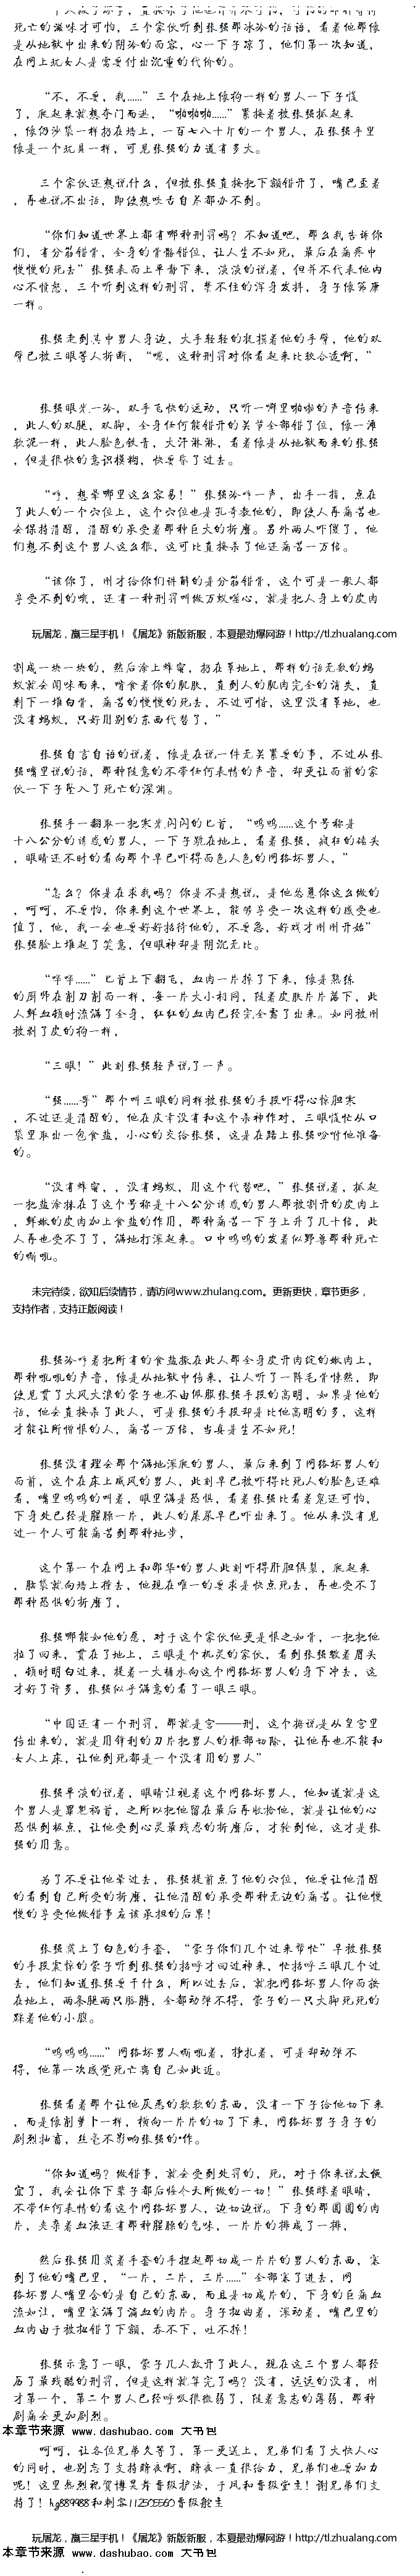 死亡的滋味才可怕，三个家伙听到张强那冰冷的话语，看着他那像
是从地狱中出来的阴冷的面容，心一下子凉了，他们第一次知道，
在网上玩女人是需要付出沉重的代价的。
“不，不要，我……”三个在地上像狗一样的男人一下子慌
了，爬起来就想夺门而逃，“啪啪啪……”紧接着被张强抓起来
，像仍沙袋一样扔在墙上，一百七八十斤的一个男人，在张强手里
像是一个玩具一样，可见张强的力道有多大。
三个家伙还想说什么，但被张强直接把下颚错开了，嘴巴歪着
，再也说不出话，即使想咬舌自尽都办不到。
“你们知道世界上都有哪种刑罚吗？不知道吧，那么我告诉你
们，有分筋错骨，全身的骨骼错位，让人生不如死，最后在痛疼中
慢慢的死去”张强表面上平静下来，淡淡的说着，但并不代表他内
心不愤怒，三个听到这样的刑罚，禁不住的浑身发抖，身子像筛康
一样。
张强走到其中男人身边，大手轻轻的抚摸着他的手臂，他的双
臂已被三眼等人折断，“嗯，这种刑罚对你看起来比较合适啊，”
张强眼光一冷，双手飞快的运动，只听一啊里啪啦的声音传来
，此人的双腿，双脚，全身任何能错开的关节全部错了位，像一滩
软泥一样，此人脸色铁青，大汗淋淋，看着像是从地狱而来的张强
，但是很快的意识模糊，快要昏了过去。
“哼，想晕哪里这么容易！”张强冷哼一声，出手一指，点在
了此人的一个穴位上，这个穴位也是孔奇教他的，即使人再痛苦也
会保持清醒，清醒的承受着那种巨大的折磨。另外两人吓傻了，他
们想不到这个男人这么狠，这可比直接杀了他还痛苦一万倍。
“该你了，刚才给你们讲解的是分筋错骨，这个可是一般人都
享受不到的哦，还有一种刑罚叫做万蚁噬心，就是把人身上的皮肉
玩屠龙，赢三星手机！《屠龙》新版新服，本夏最劲爆网游！http://tl.zhualang.com
割成一块一块的，然后涂上蜂蜜，扔在草地上，那样的话无数的蚂
蚁就会闻味而来，啃食着你的肌肤，直到人的肌肉完全的消失，直
剩下一堆白骨，痛苦的慢慢的死去，不过可惜，这里没有草地，也
没有蚂蚁，只好用别的东西代替了，”
张强自言自语的说着，像是在说一件无关紧要的事，不过从张
强嘴里说的话，那种随意的不带任何表情的声音，却更让面前的家
伙一下子坠入了死亡的深渊。
张强手一翻取一把寒光闪闪的匕首，“呜呜……这个号称是
十八公分的诱惑的男人，一下子跪在地上，看着张强，疯狂的磕头
，眼睛还不时的看向那个早已吓得面色人色的网络坏男人，”
“怎么？你是在求我吗？你是不是想说，是他怂恿你这么做的
，呵呵，不要怕，你来到这个世界上，能够享受一次这样的感受也
值了，他，我一会也要好好招待他的，不要急，好戏才刚刚开始”
张强脸上堆起了笑意，但眼神却是阴沉无比。
“哗哗……”匕首上下翻飞，血肉一片掉了下来，像是熟练
的厨师在削刀削面一样，每一片大小相同，随着皮肤片片落下，此
人鲜血顿时流满了全身，红红的血肉已经完全露了出来。如同被刚
被剥了皮的狗一样，
“三眼！”此刻张强轻声说了一声。
“强……哥”那个叫三眼的同样被张强的手段吓得心惊胆寒
，不过还是清醒的，他在庆幸没有和这个杀神作对，三眼慌忙从口
袋里取出一包食盐，小心的交给张强，这是在路上张强吩咐他准备
的。
“没有蜂蜜，，没有蚂蚁，用这个代替吧，”张强说着，抓起
一把盐涂抹在了这个号称是十八公分诱惑的男人那被割开的皮肉上
，鲜嫩的皮肉加上食盐的作用，那种痛苦一下子上升了几十倍，此
人再也受不了了，满地打滚起来。口中呜呜的发着似野兽那种死亡
的嘶吼。
未完待续，欲知后续情节，请访问www.zhulang.com。更新更快，章节更多，
支持作者，支持正版阅读！
张强冷哼着把所有的食盐撒在此人那全身皮开肉绽的嫩肉上，
那种吼吼的声音，像是从地狱中传来，让人听了一阵毛骨悚然，即
使见贯了大风大浪的蒙子也不由佩服张强手段的高明，如果是他的
话，他会直接杀了此人，可是张强的手段却是比他高明的多，这样
才能让所憎恨的人，痛苦一万倍，当真是生不如死！
张强没有理会那个满地滚爬的男人，最后来到了网络坏男人的
面前，这个在床上威风的男人，此刻早已被吓得比死人的脸色还难
看，嘴里呜呜的叫着，眼里满是恐惧，看着张强比看着鬼还可怕，
下身处已经是腥臊一片，此人的屎尿早已吓出来了。他从来没有见
过一个人可能痛苦到那种地步，
这个第一个在网上和邵华*的男人此刻吓得肝胆俱裂，爬起来
，脑袋就向墙上撞去，他现在唯一的要求是快点死去，再也受不了
那种恐惧的折磨了，
张强哪能如他的愿，对于这个家伙他更是恨之如骨，一把把他
拉了回来，贯在了地上，三眼是个机灵的家伙，看到张强皱着眉头
，顿时明白过来，提着一大桶水向这个网络坏男人的身下冲去，这
才好了许多，张强似乎满意的看了一眼三眼。
“中国还有一个刑罚，那就是宫——刑，这个据说是从皇宫里
传出来的，就是用锋利的刀片把男人的根部切除，让他再也不能和
女人上床，让他到死都是一个没有用的男人”
张强平淡的说着，眼睛注视着这个网络坏男人，他知道就是这
个男人是罪魁祸首，之所以把他留在最后再收拾他，就是让他的心
恐惧到极点，让他受到心灵最残忍的折磨后，才轮到他，这才是张
强的用意。
为了不要让他晕过去，张强提前点了他的穴位，他要让他清醒
的看到自己所受的折磨，让他清醒的承受那种无边的痛苦。让他慢
慢的享受他做错事应该承担的后果！
张强戴上了白色的手套，“蒙子你们几个过来帮忙”早被张强
的手段震惊的蒙子听到张强的招呼才回过神来，忙招呼三眼几个过
去，他们知道张强要干什么，所以过去后，就把网络坏男人仰面按
在地上，两条腿两只胳膊，全部动弹不得，蒙子的一只大脚死死的
踩着他的小腹。
“呜呜呜……”网络坏男人嘶吼着，挣扎着，可是却动弹不
得，他第一次感觉死亡离自己如此近。
张强看着那个让他厌恶的软软的东西，没有一下子给他切下来
，而是像削萝卜一样，横向一片片的切了下来，网络坏男子身子的
剧烈抽畜，丝毫不影响张强的*作。
“你知道吗？做错事，就会受到处罚的，死，对于你来说太便
宜了，我会让你下辈子都后悔今天所做的一切！”张强眯着眼睛，
不带任何表情的看这个网络坏男人，边切边说。下身的那圆圆的肉
片，夹杂着血液还有那种腥臊的气味，一片片的排成了一排，
然后张强用戴着手套的手捏起那切成一片片的男人的东西，塞
到了他的嘴巴里，“一片，二片，三片……”全部塞了进去，网
络坏男人嘴里含的是自己的东西，而且是切成片的，下身的巨痛血
流如注，嘴里塞满了滴血的肉片。身子扭曲着，滚动着，嘴巴里的
血肉由于被扭错了下颚，吞不下，吐不掉！
张强示意了一眼，蒙子几人放开了此人，现在这三个男人都经
历了最残酷的刑罚，但是这样就算完了吗？没有，远远的没有，刚
才第一个，第二个男人已经呼吸很微弱了，随着意志的薄弱，那种
剧痛会更加剧烈。
本章节来源 www.dashubao.com 大书包
呵呵，让各位兄弟久等了，第一更送上，兄弟们看了大快人心
的同时，也别忘了支持醉夜啊，醉夜一直很给力，兄弟们也要加力
呢！这里热烈祝贺博昊寿晋级护法，于风和晋级堂主！谢兄弟们支
持了！hg889988和刺客112505560晋级舵主
玩屠龙，赢三星手机！《屠龙》新版新服，本夏最劲爆网游！http://tl.zhualang.com
本章节来源 www.dashubao.com 大书包